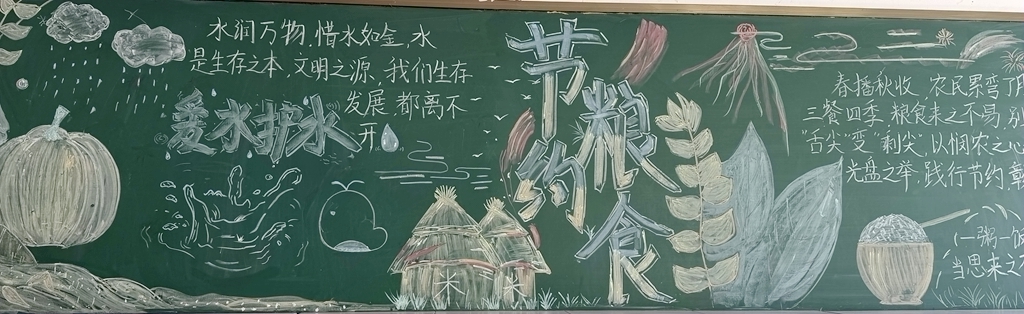 水润万物,惜水如金,水
是生存之本,文明之源,我们生存
发展,都离不
开
爱水护水
节约
粮食
春播秋收,农民累弯了
三餐四季,粮食来之不易,别
“舌尖”变“剩尖”,以悯农之心
光盘之举,践行节约
(一粥一饭
当思来之